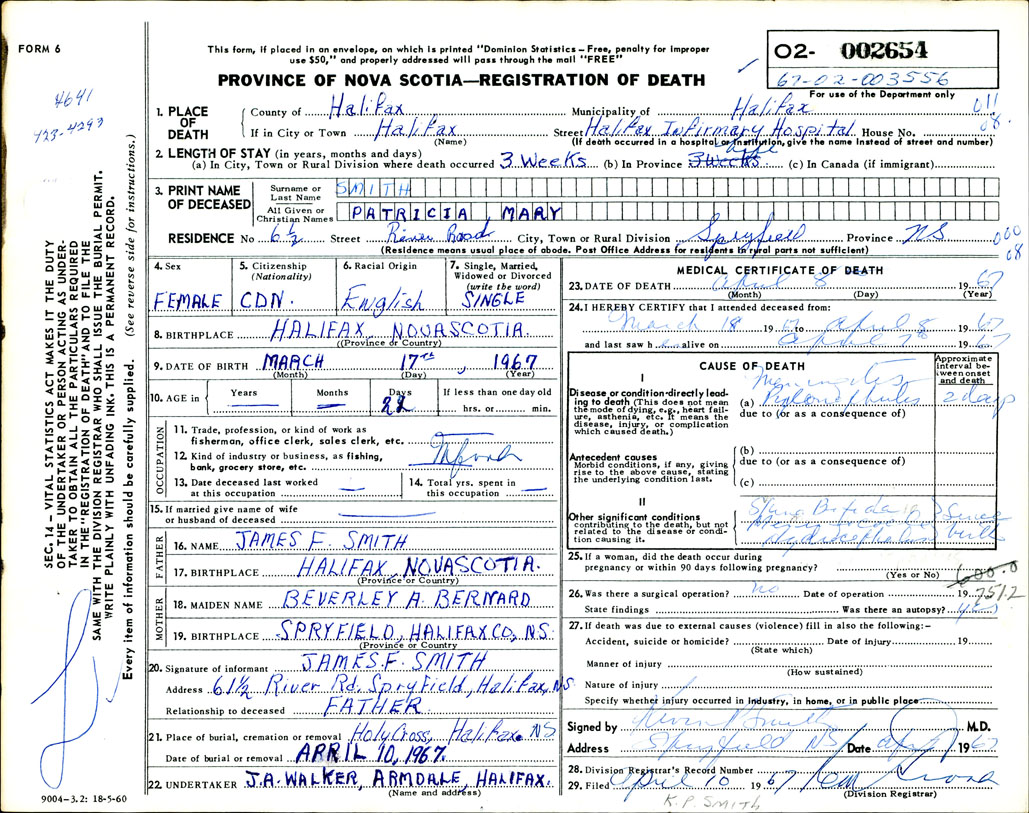 FORM 6
This form, if placed in an envelope, on which is printed "Dominion Statistics – Free, penalty for improper
use $50," and properly addressed will pass through the mail "FREE"
PROVINCE OF NOVA SCOTIA—REGISTRATION OF DEATH
02- 002654
67-02-003556
For use of the Department only
4641
423-4293
011
08.
1. PLACE OF DEATH
County of Halifax Municipality of Halifax
If in City or Town Halifax Street Halifax Infirmary Hospital House No.
(Name) (If death occurred in a hospital or institution, give the name instead of street and number)
2. LENGTH OF STAY (in years, months and days)
(a) In City, Town or Rural Division where death occurred 3 Weeks (b) In Province 3 Weeks life (c) In Canada (if immigrant)
3. PRINT NAME OF DECEASED
Surname or Last Name SMITH
All Given or Christian Names PATRICIA MARY
RESIDENCE No 6½ Street River Road City, Town or Rural Division Spryfield Province NS
(Residence means usual place of abode. Post Office Address for residents in rural parts not sufficient)
000
08
4. Sex FEMALE
5. Citizenship (Nationality) CDN.
6. Racial Origin English
7. Single, Married, Widowed or Divorced (write the word) SINGLE
8. BIRTHPLACE HALIFAX, NOVA SCOTIA.
(Province or Country)
9. DATE OF BIRTH MARCH 17th, 1967
(Month) (Day) (Year)
10. AGE in Years — Months — Days 22 If less than one day old hrs. or min.
OCCUPATION
11. Trade, profession, or kind of work as
fisherman, office clerk, sales clerk, etc.
12. Kind of industry or business, as fishing,
bank, grocery store, etc.
13. Date deceased last worked
at this occupation —
14. Total yrs. spent in
this occupation —
15. If married give name of wife
or husband of deceased —
FATHER
16. NAME JAMES F. SMITH
17. BIRTHPLACE HALIFAX, NOVA SCOTIA.
(Province or Country)
MOTHER
18. MAIDEN NAME BEVERLEY A. BERNARD
19. BIRTHPLACE SPRYFIELD, HALIFAX CO, N.S.
(Province or Country
20. Signature of informant JAMES F. SMITH
Address 61½ River Rd. Spryfield, Halifax, NS
Relationship to deceased FATHER
21. Place of burial, cremation or removal Holy Cross, Halifax NS
Date of burial or removal APRIL 10, 1967.
22. UNDERTAKER J.A. WALKER, ARMDALE, HALIFAX.
(Name and address)
9004–3.2: 18-5-60
MEDICAL CERTIFICATE OF DEATH
23. DATE OF DEATH April 8 1967
(Month) (Day) (Year)
24. I HEREBY CERTIFY that I attended deceased from:
March 18 1967 to April 8 1967
and last saw h alive on April 7th 1967
CAUSE OF DEATH
Approximate interval between onset and death
I
Disease or condition directly leading to death (This does not mean the mode of dying, e.g., heart failure, asthenia, etc. It means the disease, injury, or complication which caused death.)
(a) Meningitis 2 days
due to (or as a consequence of)
Antecedent causes
Morbid conditions, if any, giving rise to the above cause, stating the underlying condition last.
(b)
due to (or as a consequence of)
(c)
II
Other significant conditions contributing to the death, but not related to the disease or condition causing it.
Spina Bifida
Hydrocephalus
Since
birth
25. If a woman, did the death occur during
pregnancy or within 90 days following pregnancy?
(Yes or No)
600.0
751.2
26. Was there a surgical operation? no Date of operation 19
State findings Was there an autopsy? yes
27. If death was due to external causes (violence) fill in also the following:–
Accident, suicide or homicide? Date of injury 19
(State which)
Manner of injury
(How sustained)
Nature of injury
Specify whether injury occurred in industry, in home, or in public place
Signed by M.D.
Address Spryfield NS Date 1967
28. Division Registrar's Record Number
29. Filed April 10 1967
(Division Registrar)
K. P. SMITH
SEC. 14 – VITAL STATISTICS ACT MAKES IT THE DUTY
OF THE UNDERTAKER OR PERSON ACTING AS UNDER-
TAKER TO OBTAIN ALL THE PARTICULARS REQUIRED
IN THE "REGISTRATION OF DEATH" AND TO FILE THE
SAME WITH THE DIVISION REGISTRAR WHO SHALL ISSUE THE BURIAL PERMIT.
WRITE PLAINLY WITH UNFADING INK. THIS IS A PERMANENT RECORD.
Every item of information should be carefully supplied. (See reverse side for instructions.)